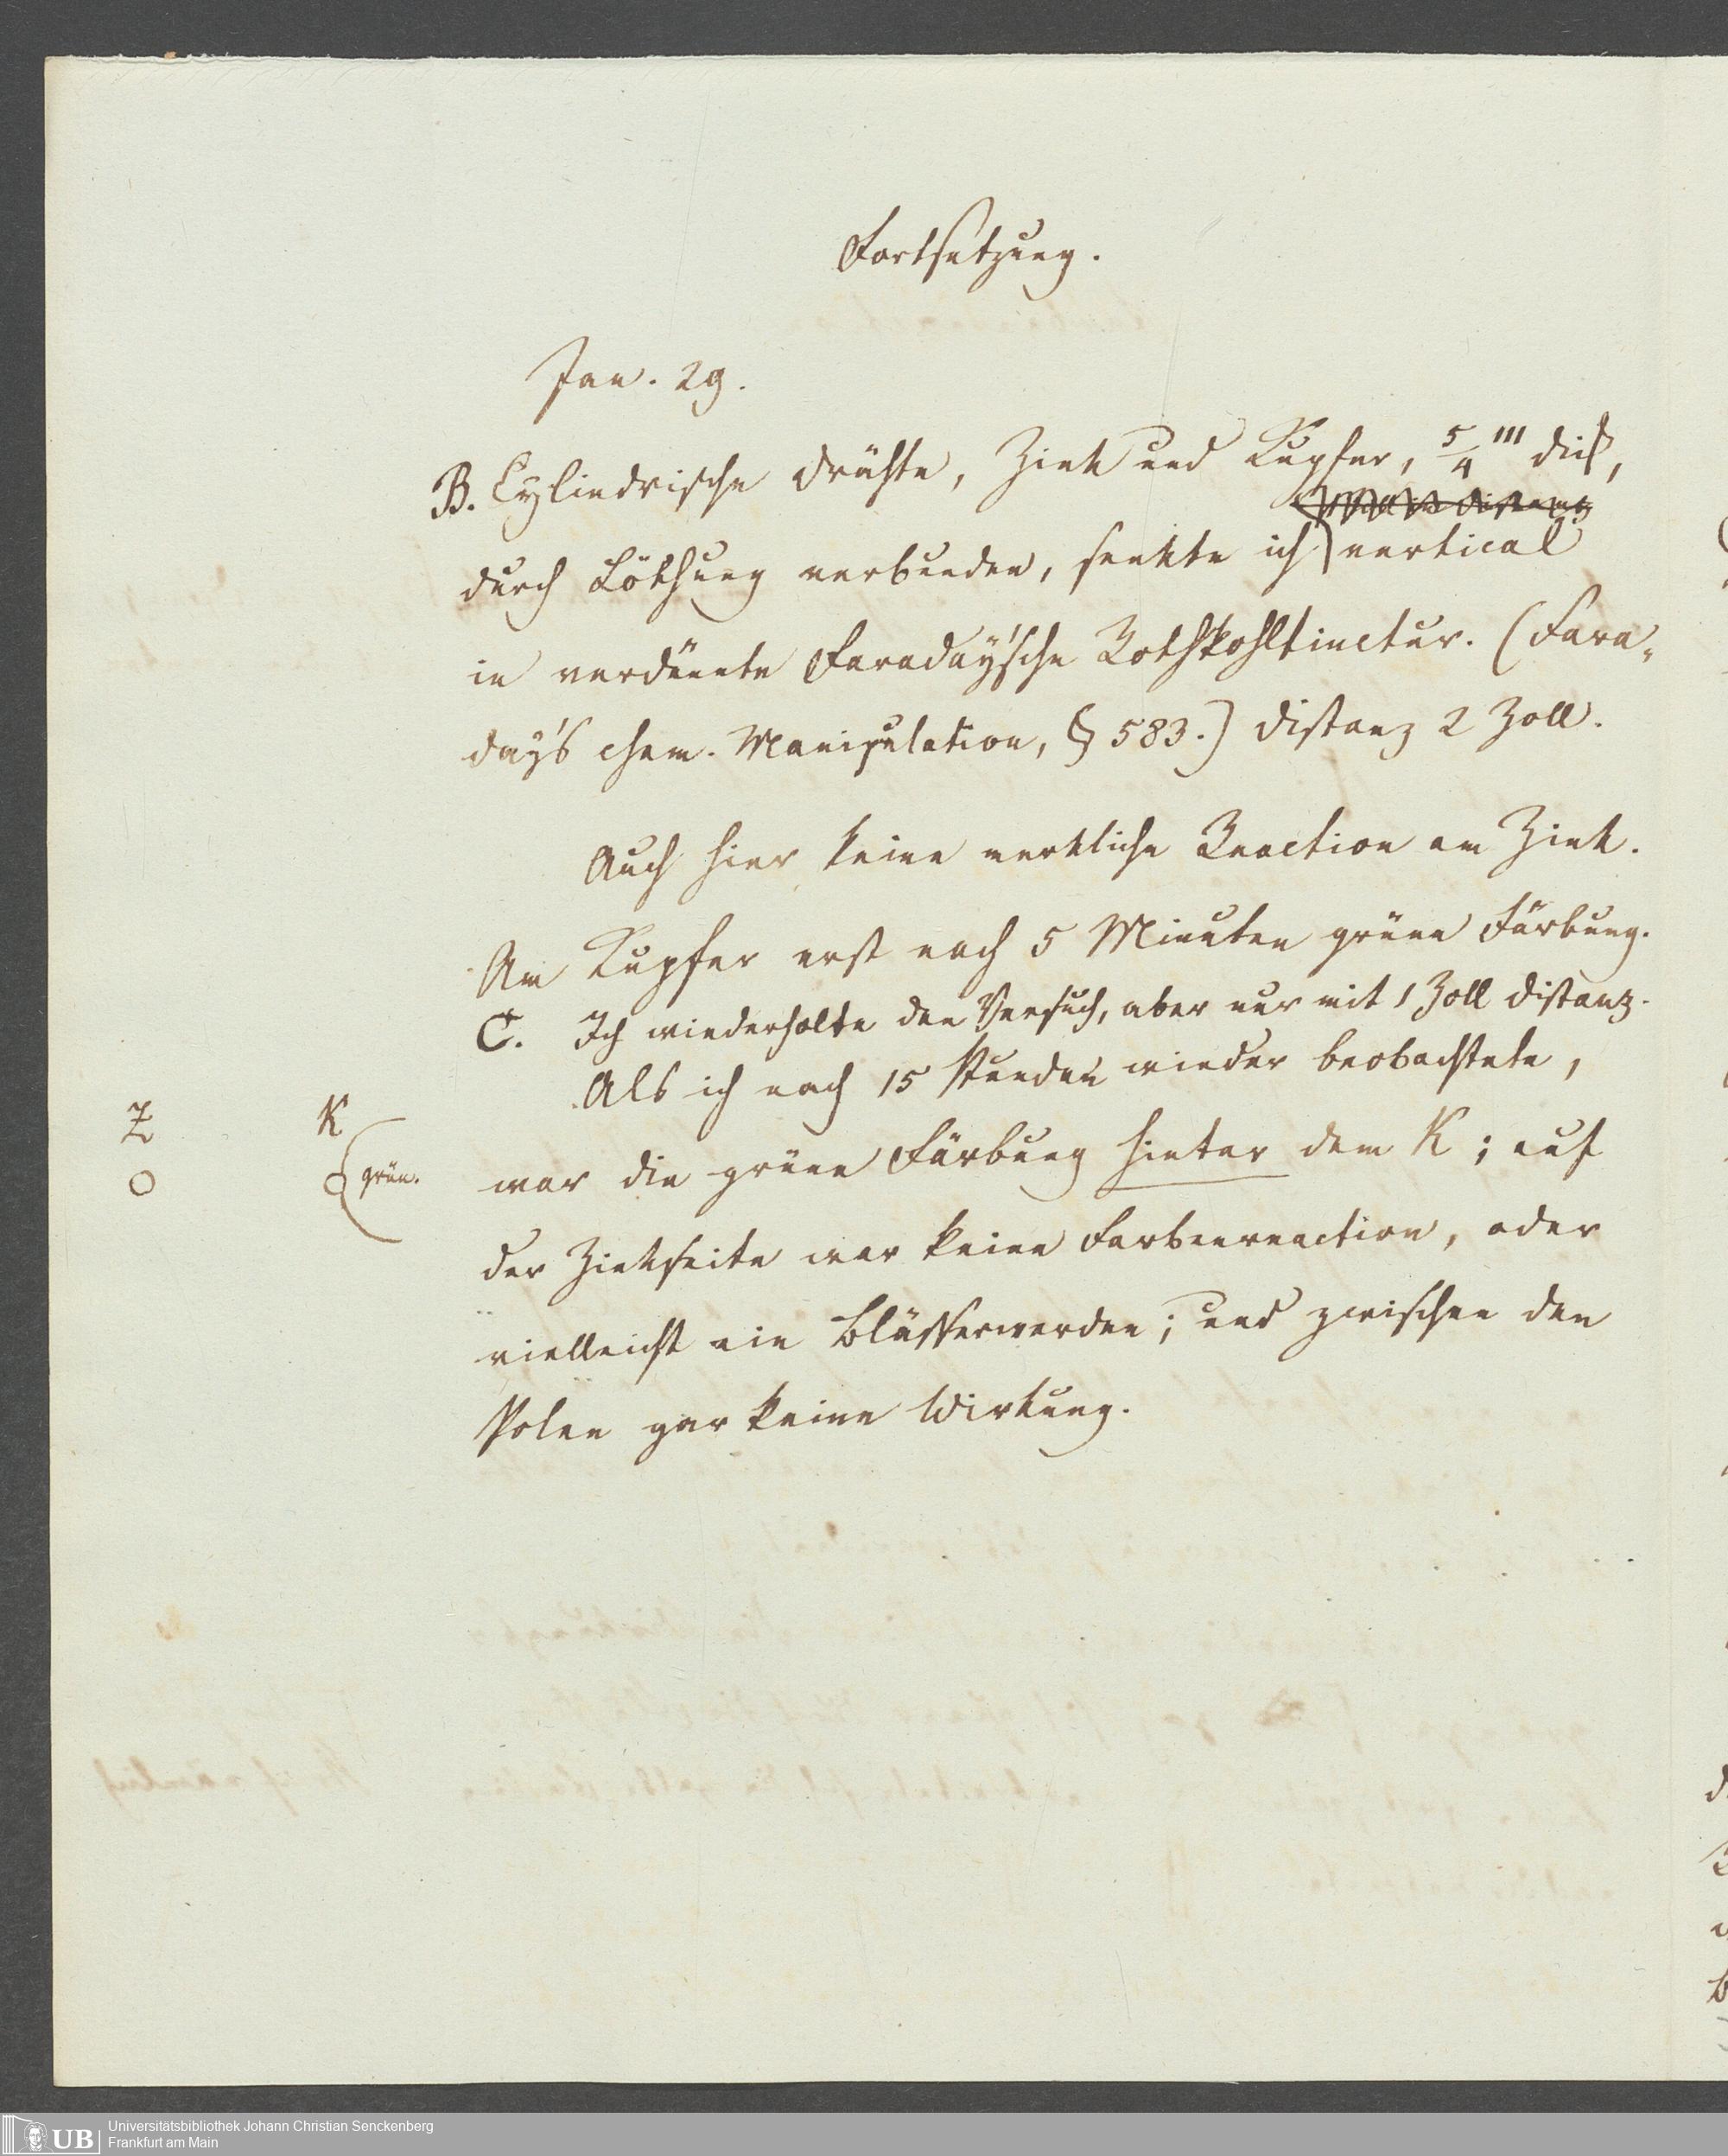 Fortsetzung.
Jan. 29.
B. Cylindrische Drähte, Zink und Kupfer, 5/4''' dick,
durch Löthung verbunden, senkte ich vertical
in verdünnte Faraday'sche Rothkohltinctur. (Fara-
day's chem. Manipulation, § 583.) Distanz 2 Zoll.
Auch hier keine merkliche Reaction am Zink.
Am Kupfer erst nach 5 Minuten grüne Färbung.
C. Ich wiederholte den Versuch, aber nur mit 1 Zoll Distanz.
Als ich nach 15 Stunden wieder beobachtete,
Z K
war die grüne Färbung hinter dem K; auf
O O grün.
der Zinkseite war keine Farbenreaction, oder
vielleicht ein Blässerwerden; und zwischen den
Polen gar keine Wirkung.
UB
Universitätsbibliothek Johann Christian Senckenberg
Frankfurt am Main